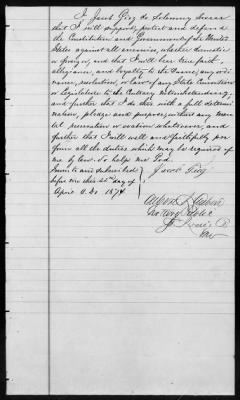 I Jacob Gieg do solemnly swear
that I will support, protect and defend
the Constitution and Government of the United
States against all enemies, whether domestic
or foreign, and that I will bear true faith,
allegiance, and loyalty to the same, any ordi-
nance, resolution, or law of any State Convention
or Legislature to the Contrary notwithstanding,
and further that I do this with a full determi-
nation, pledge and purpose, without any men-
tal reservation or evasion whatsoever; and
further that I will well and faithfully per-
form all the duties which may be required of
me by law. So help me God.
Sworn to and subscribed
before me this day of
April A.D. 1874
Jacob Gieg
Notary Public
St Louis Co
Mo